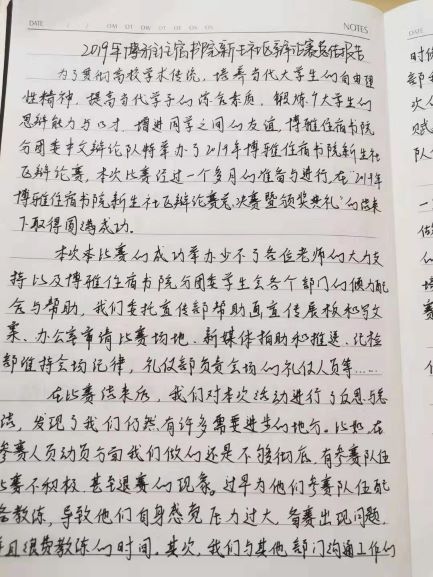 DATE
NOTES
2019年博雅住宿书院新生社区辩论赛总结报告
为了贯彻高校学术传统，培养当代大学生们自由理
性精神，提高当代学子们综合素质，锻炼大学生们
思辩能力与口才，增进同学之间们友谊，博雅住宿书院
分团委中文辩论队特举办了2019年博雅住宿书院新生社
区辩论赛，本次比赛经过一个多月们准备与进行，在“2019年
博雅住宿书院新生社区辩论赛总决赛暨颁奖典礼”们结束
下取得圆满成功。
本次本比赛们成功举办少不了各位老师们大力支
持以及博雅住宿书院分团委学生会各个部门们倾力配
合与帮助，我们委托宣传部帮助画宣传展板和写文
案、办公室申请比赛场地、新媒体拍助和推送、纪检
部维持会场纪律，礼仪部负责会场们礼仪人员等……
在比赛结束后，我们对本次活动进行了反思与总
结，发现了我们仍然有许多需要进步们地方。比如，在
参赛人员动员方面我们做们还是不够彻底，有参赛队伍
比赛不积极，甚至退赛们现象。过早为他们参赛队伍配
备教练，导致他们自身感觉压力过大，备赛出现问题，
并且浪费教练们时间。其次，我们与其他部门沟通工作们